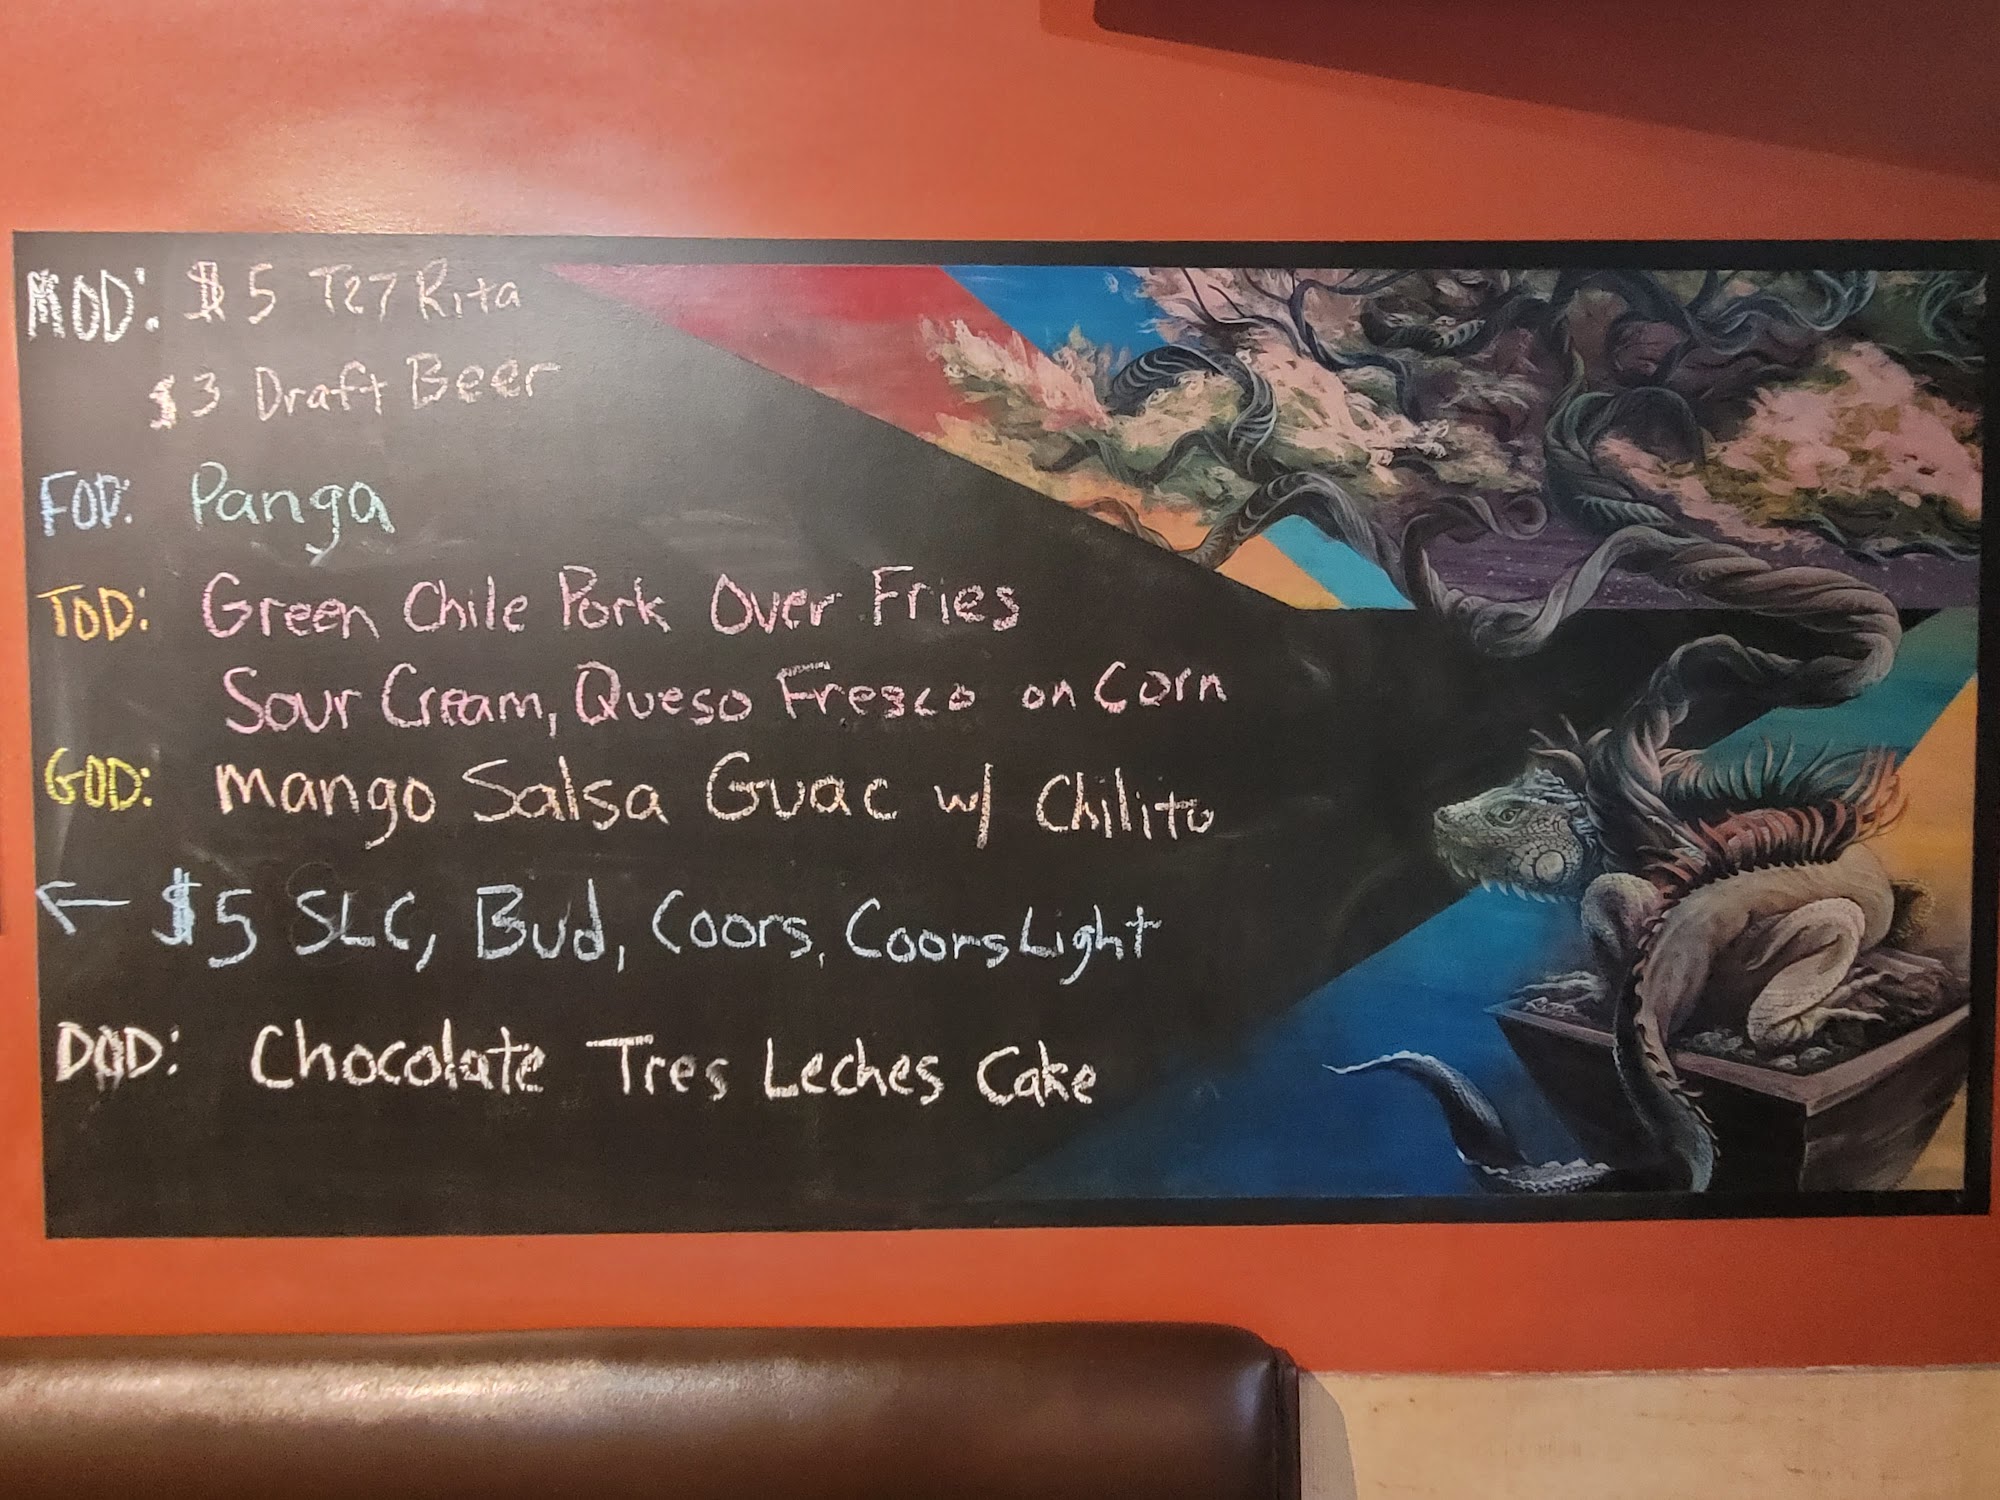 MOD: $5 T27 Rita
$3 Draft Beer
FOD: Panga
TOD: Green Chile Pork Over Fries
Sour Cream, Queso Fresco on Corn
GOD: Mango Salsa Guac w/ Chilito
← $5 SLC, Bud, Coors, Coors Light
DOD: Chocolate Tres Leches Cake